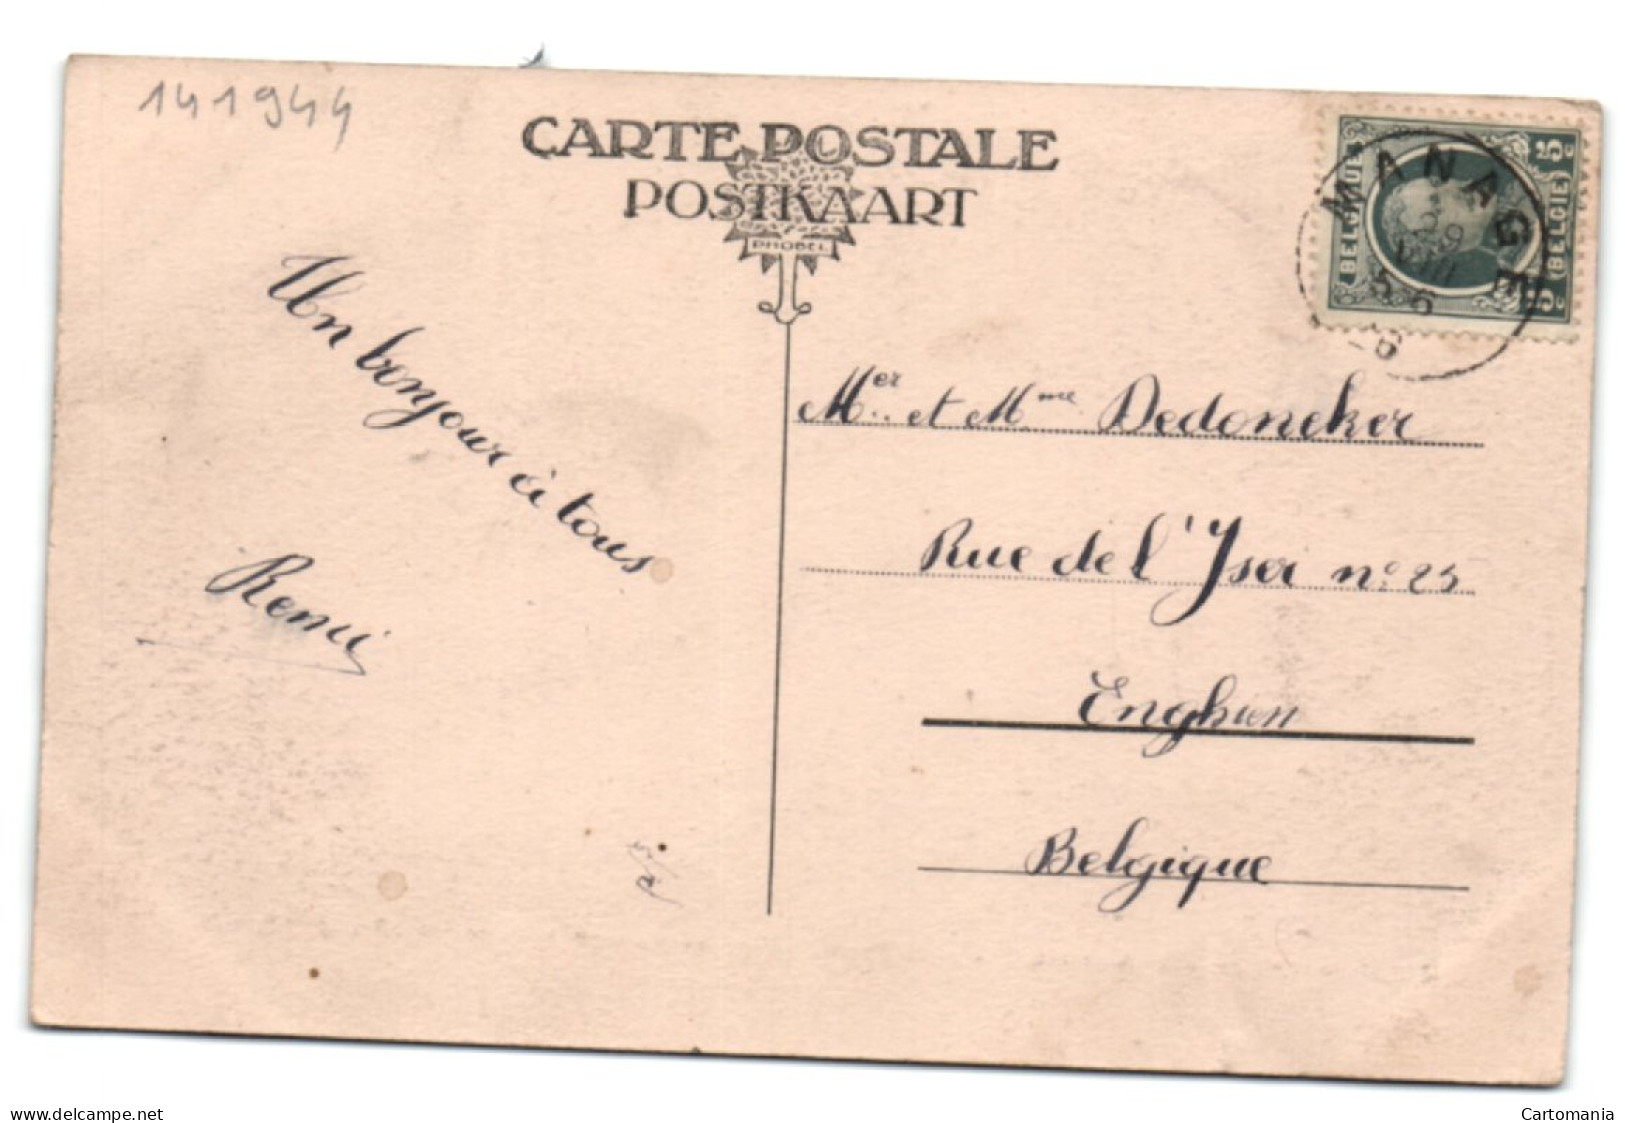 141944
CARTE POSTALE
POSTKAART
PHOBEL
MANAGE
BELGIQUE
(BELGIË)
5c
5c
Un bonjour à tous
Remi
Mer et Mme Dedoneker
Rue de l'Yser n° 25
Enghien
Belgique
www.delcampe.net
Cartomania